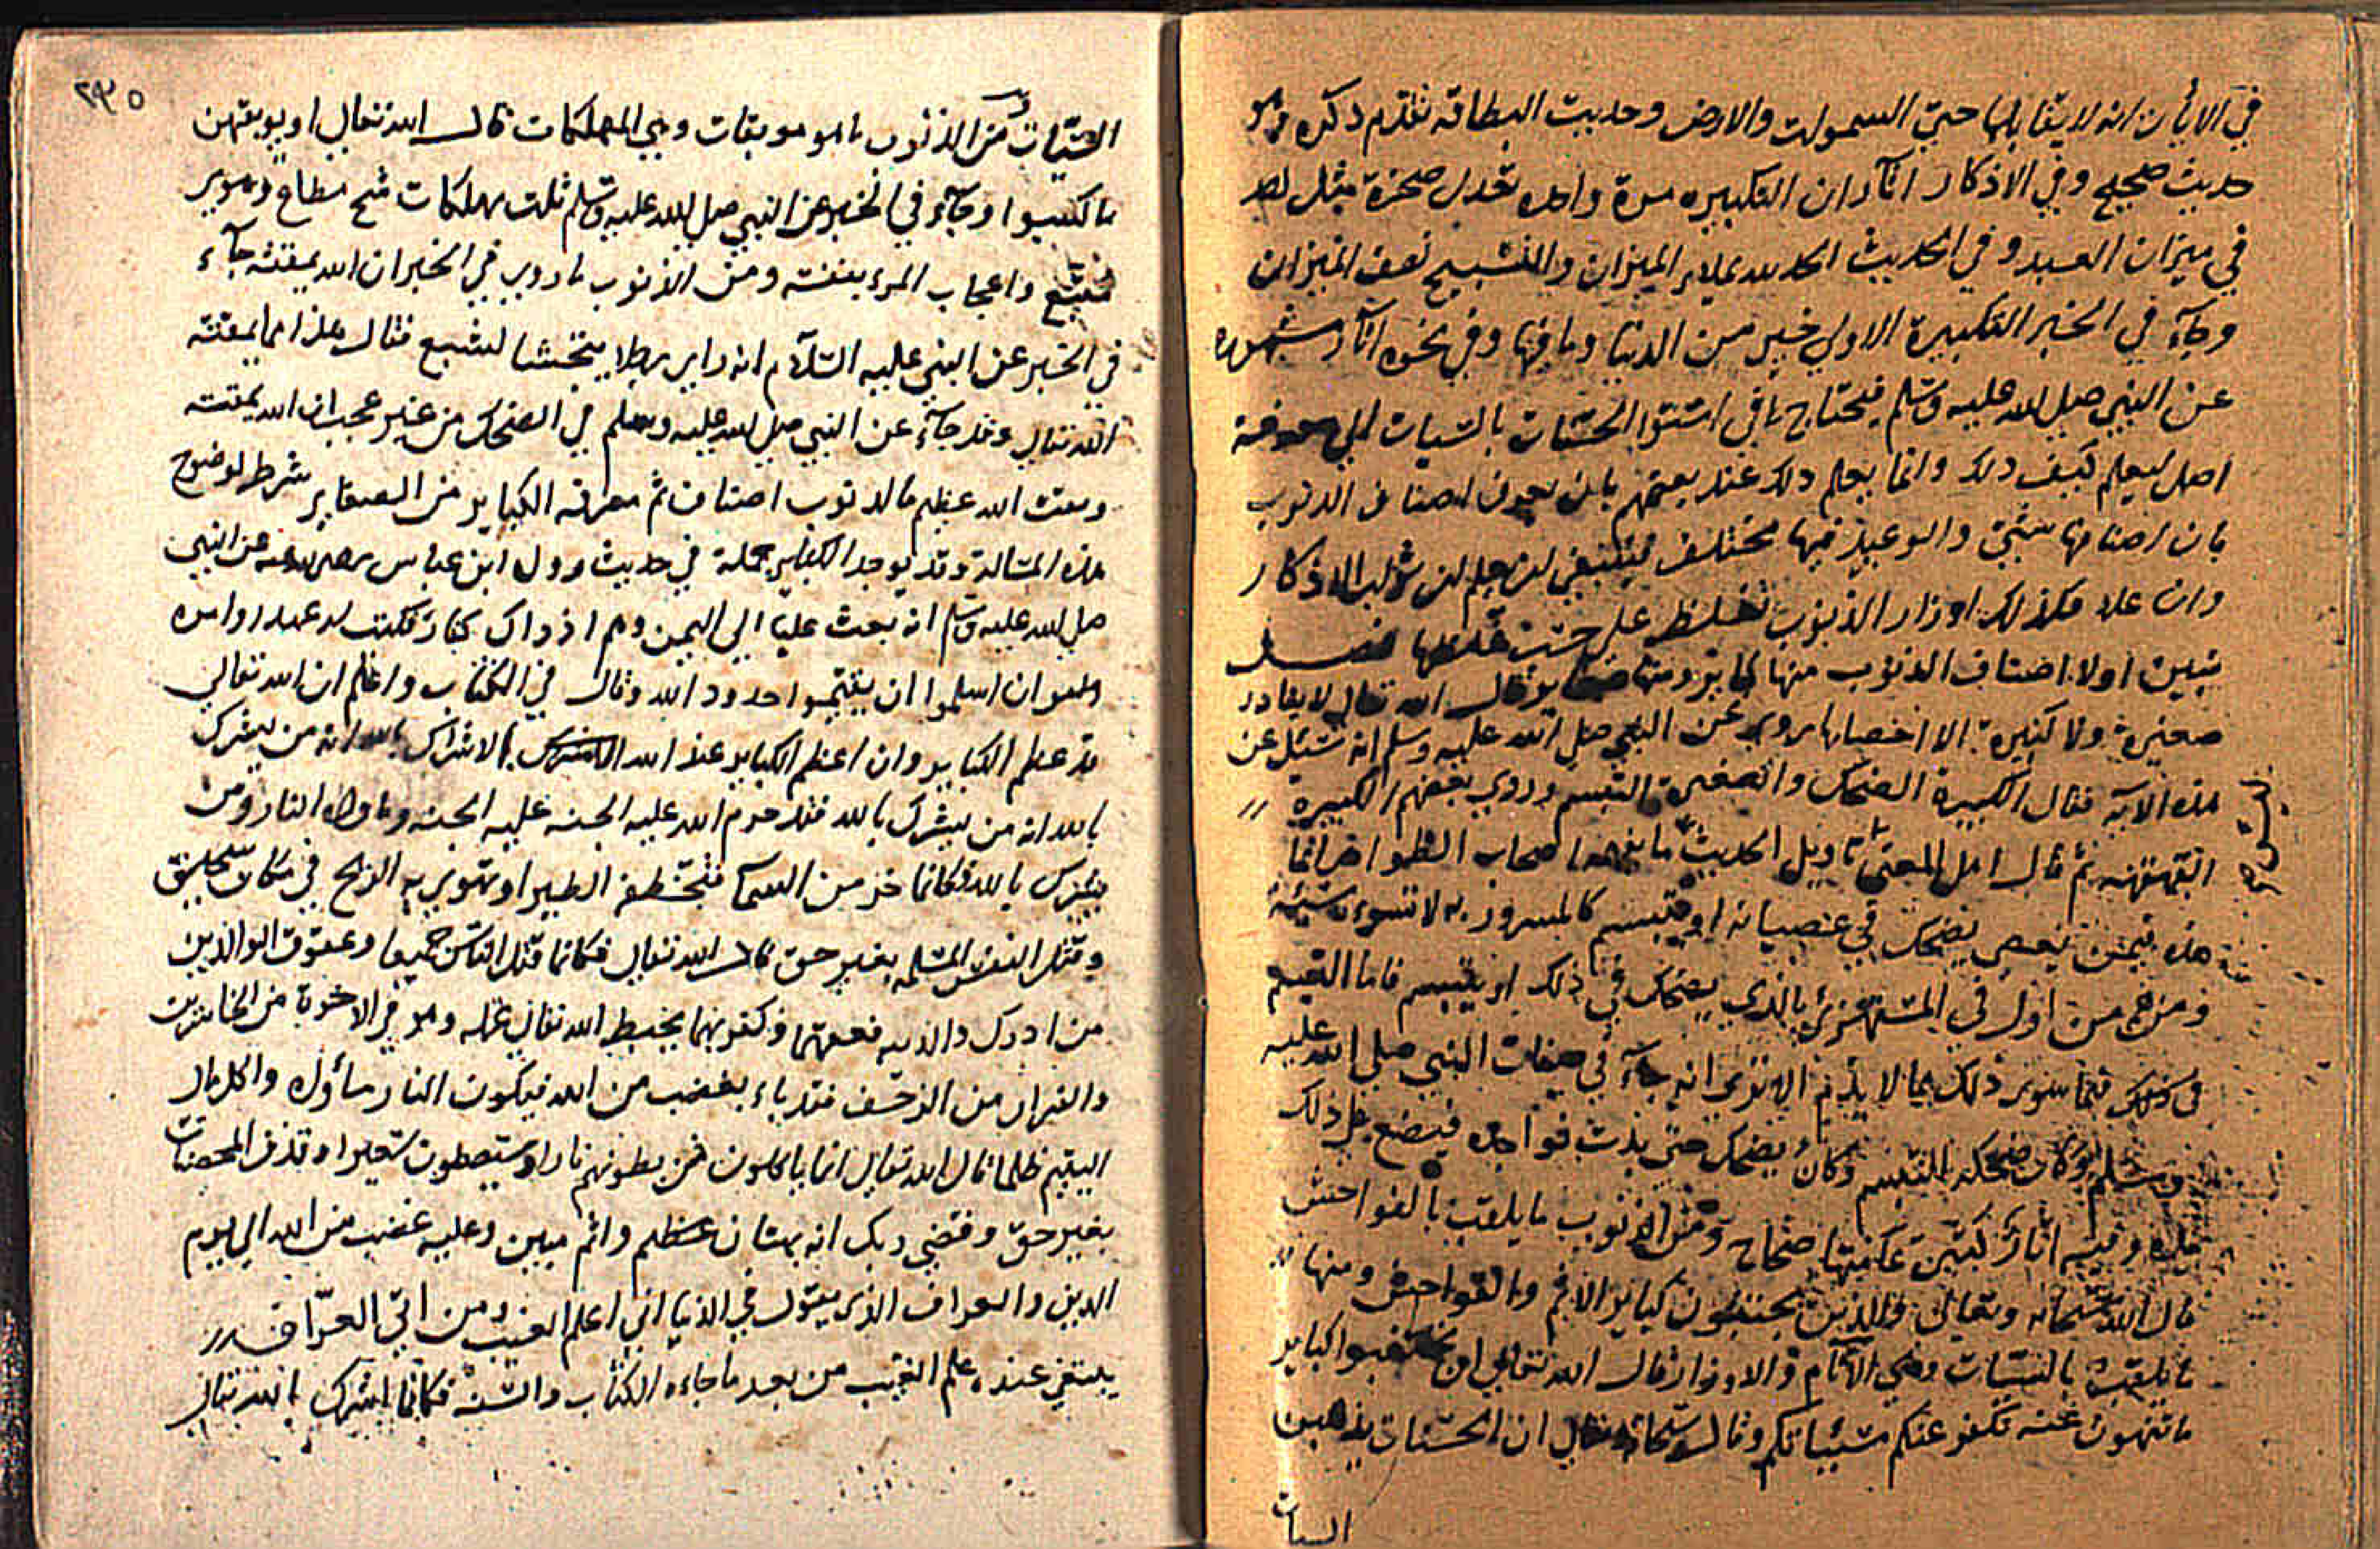 في الايمان انه لا يقابلها حتى السموات والارض وحديث البطاقة تقدم ذكره وهو
حديث صحيح وفي الاذكار اثار ان التكبيره مرة واحده تعدل صخرة مثل احد
في ميزان العبد وفي الحديث الحمد لله يملاء الميزان والتسبيح نصف الميزان
وجآء في الخبر التكبيرة الاولى خير من الدنيا وما فيها وفي نحوه اثار مشهوره
عن النبي صلى الله عليه وسلم فيحتاج في استوا الحسنات بالسيات الى معرفة
اصل ليعلم كيف ذلك وانما يعلم ذلك عند بعضهم بان يعرف اصناف الذنوب
بان اصنافها شتى والوعيد فيها مختلف فينبغي لمن علم ان ثواب الاذكار
وان علا فكذلك اوزار الذنوب تغلظ على حسب غلظها فصل
نبين اولا اصناف الذنوب منها كبائر ومنها صغائر قال الله تعالى لا يغادر
صغيرة ولا كبيرة الا احصاها روي عن النبي صلى الله عليه وسلم انه سئل عن
هذه الآية فقال الكبيرة الضحك والصغيرة التبسم وروي بعضهم الكبيرة
القهقهه ثم قال اهل المعنى تاويل الحديث اصحاب الظواهر انما
هذه فيمن يعصي يضحك في عصيانه او يتبسم كالمسرور به لا تسوءه سيئة
ومنهم من اول في المستهزئ بالذي يضحك في ذلك او يتبسم فاما التبسم
فيما سوى ذلك بما لا ياثم الا ترى انه جآء في صفات النبي صلى الله عليه
وسلم وكان ضحكه التبسم وكان يضحك حتى بدت نواجذه فيصنع على ذلك
هذه وفيه اثار صحاح ومن الذنوب ما يلقب بالفواحش
قال الله سبحانه وتعالى والذين يجتنبون كبائر الاثم والفواحش ومنها
ما يلقب بالسيات وهي الآثام والاوزار قال الله تعالى ان تجتنبوا كباير
ما تنهون عنه نكفر عنكم سيئاتكم وقال سبحانه وتعالى ان الحسنات يذهبن
السيات
٢٣٥
السيات ومن الذنوب ما هو موبقات وهي المهلكات قال الله تعالى او يوبقهن
بما كسبوا وجآء في الخبر عن النبي صلى الله عليه وسلم ثلث مهلكات شح مطاع وهوى
متبع واعجاب المرء بنفسه ومن الذنوب ما روي في الخبر ان الله يمقته جآء
في الخبر عن النبي عليه السلام انه راى رجلا يتجشا لشبع فقال هذا مما يمقته
الله تعالى وقد جآء عن النبي صلى الله عليه وسلم في الضحك من غير عجب ان الله يمقته
ومقت الله عظيم فالذنوب اصناف ثم معرفة الكباير من الصغاير شرط لوضوح
هذه المسالة وقد يوجد الكباير جملة في حديث رواه ابن عباس رضي الله عنه عن النبي
صلى الله عليه وسلم انه بعث عليا الى اليمن وهم اذ ذاك كفار فكتب له عهد اوامره
وهو ان اسلموا ان يقيموا حدود الله وقال في الكتاب واعلم ان الله تعالى
قد عظم الكباير وان اعظم الكباير عند الله الاشراك بالله انه من يشرك
بالله انه من يشرك بالله فقد حرم الله عليه الجنه عليه الجنه وماواه النار ومن
يشرك بالله فكانما خر من السما فتخطفه الطير او تهوي به الريح في مكان سحيق
وقتل النفس المسلمه بغير حق قال الله تعالى فكانما قتل الناس جميعا وعقوق الوالدين
من ادرك والديه فعقهما وكفر بهما يحبط الله تعالى عمله وهو في الاخرة من الخاسرين
والفرار من الزحف فقد باء بغضب من الله فيكون النار ماواه واكل مال
اليتيم ظلما قال الله تعالى انما ياكلون في بطونهم نارا وسيصلون سعيرا وقذف المحصنات
بغير حق وقضى ربك انه بهتان عظيم واثم مبين وعليه غضب من الله الى يوم
الدين والعراف الذي يقول في الدنيا اني اعلم الغيب ومن اتى العرّاف
يبتغي عنده علم الغيب من بعد ما جاءه الكتاب والسنه فكانما اشرك بالله تعالى